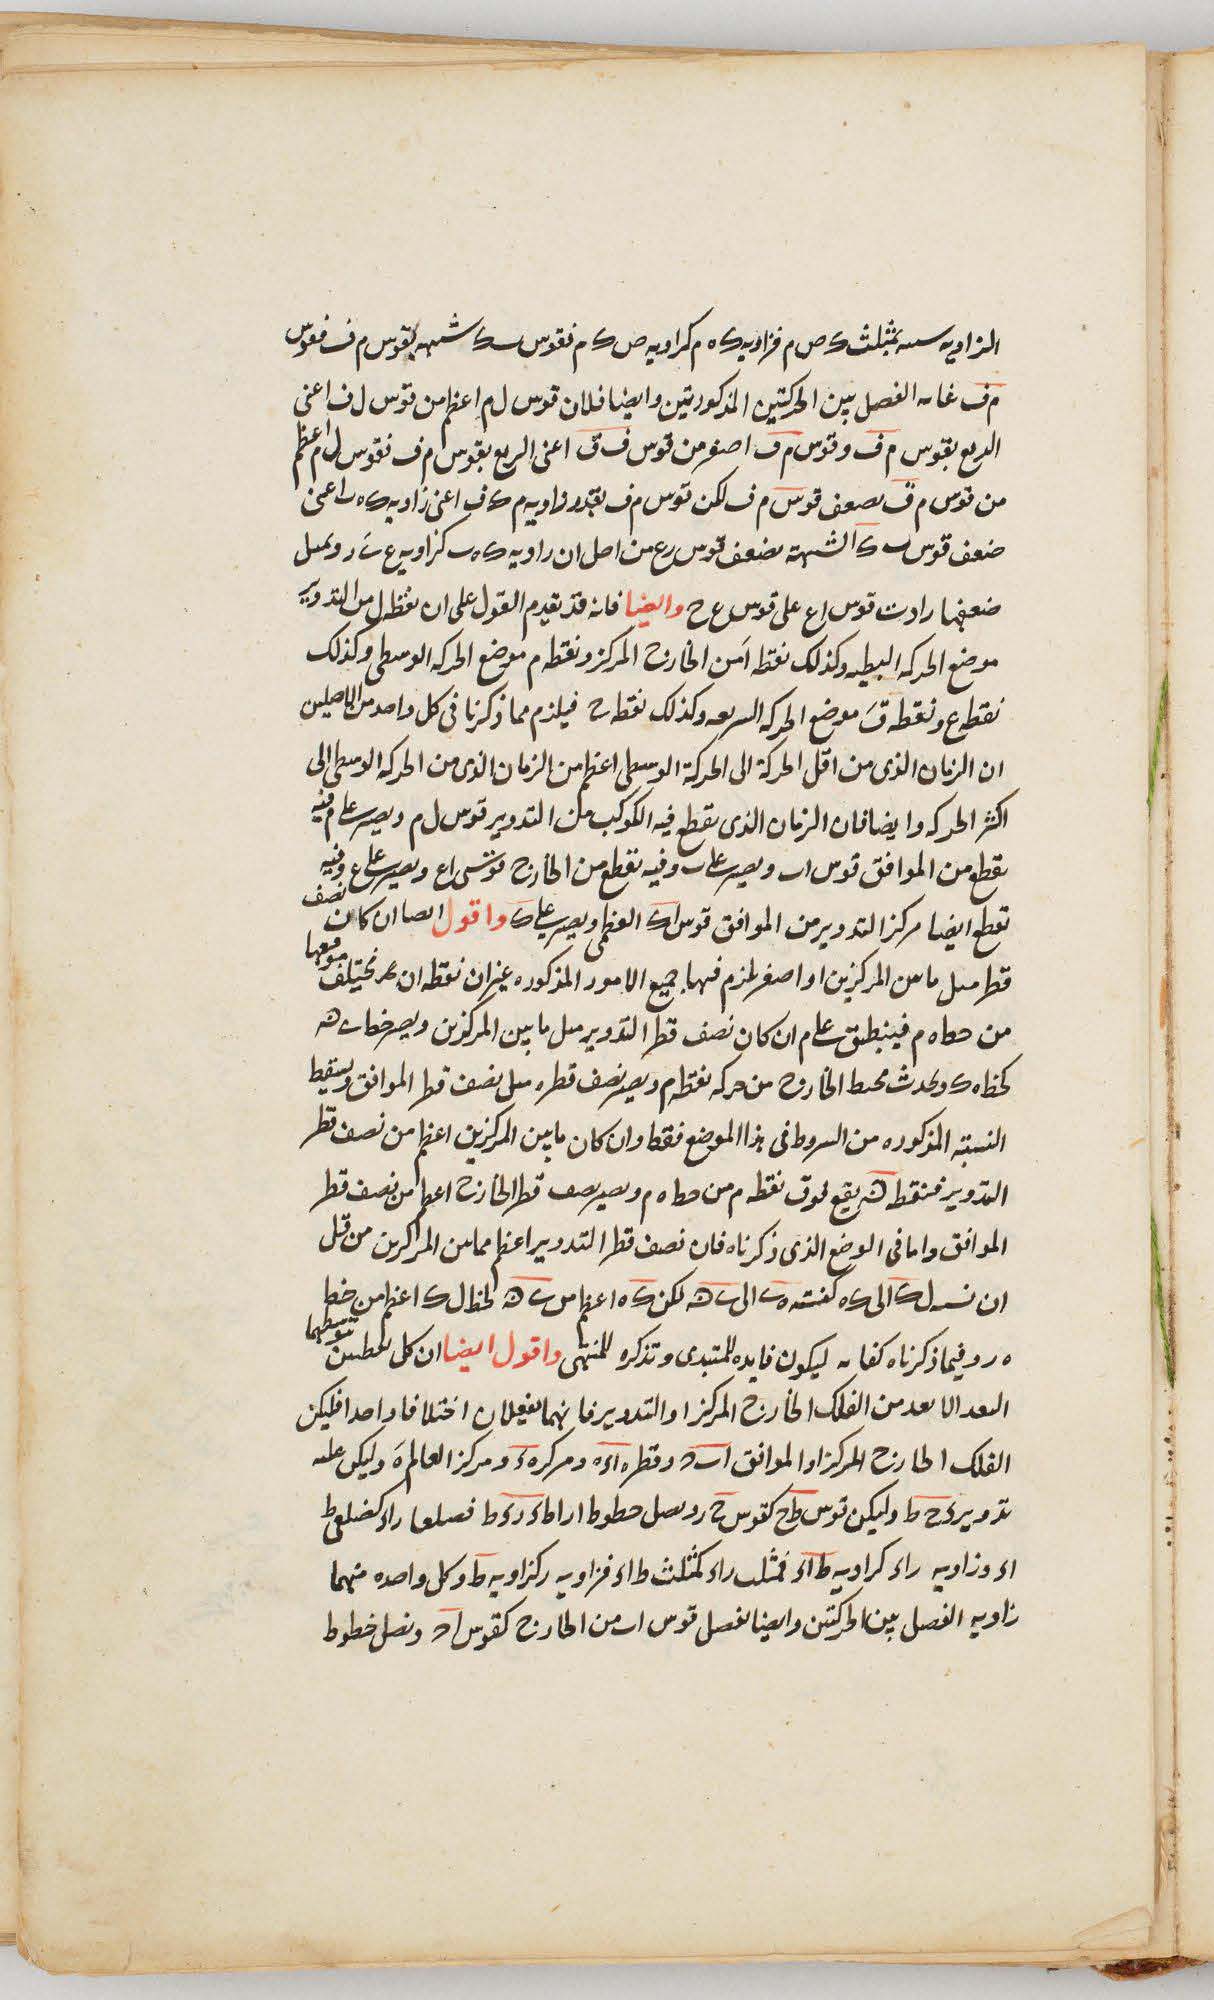 الزاويه سىه بمثلث ك ص م فزاويه ك ه م كزاويه ص ك م فقوس ٮ ك شبيهه بقوس م ف فقوس
م ف غايه الفصل بين الحركتين المذكورتين وايضا فلان قوس ل م اعظم من قوس ل ف اعنى
الربع بقوس م ف وقوس م ف اصغر من قوس ف ق اعنى الربع بقوس م ف فقوس ل م اعظم
من قوس م ق بضعف قوس م ف لكن قوس م ف بقدر زاويه م ك ف اعنى زاويه ك ه ب اعنى
ضعف قوس ب ك الشبيهة بضعف قوس رع من اصل ان زاويه ك ه ب كزاويه ع ر وبمثل
ضعفها زادت قوس اع على قوس ع ح وايضا فانه قد تقدم القول على ان نقطه ل من التدوير
موضع الحركه البطيه وكذلك نقطه ا من الخارج المركز ونقطه م موضع الحركه الوسطى وكذلك
نقطه ع ونقطه ق موضع الحركه السريعه وكذلك نقطه ح فيلزم مما ذكرنا فى كل واحد من الاصلين
ان الزمان الذى من اقل الحركة الى الحركة الوسطى اعظم من الزمان الذى من الحركه الوسطى الى
اكثر الحركه وايضا فان الزمان الذى يقطع فيه الكوكب من التدوير قوس ل م ويصير على م فيه
يقطع من الموافق قوس اب ويصير على ب وفيه يقطع من الخارج قوسى اع ويصير على ع وفيه
تقطع ايضا مركز التدوير من الموافق قوس اك العظمى ويصير على ك واقول ايضا ان كان نصف
قطر مىل ما بين المركزين او اصغر يلزم فيها جميع الامور المذكوره غير ان نقطه ان يختلف موقعها
من خط ه م فينطبق على م ان كان نصف قطر التدوير مثل ما بين المركزين ويصير خط ى ه
كخط ه ك ويحدث محيط الخارج من حركه نقطه م ويصير نصف قطره مثل نصف قطر الموافق ويسقط
النسبة المذكوره من الشروط فى هذا الموضع فقط وان كان ما بين المركزين اعظم من نصف قطر
التدوير فنقطه ه يقع فوق نقطه م من خط ه م ويصير نصف قطر الخارج اعظم من نصف قطر
الموافق واما فى الوضع الذى ذكرناه فان نصف قطر التدوير اعظم مما بين المركزين من قبل
ان نسبه ل ك الى ك ه كنسبه ه ى الى ى ه لكن ك ه اعظم من ى ه فخط ل ك اعظم من خط
ه ر وفيما ذكرناه كفايه ليكون فايده للمبتدى وتذكره للمنتهى واقول ايضا ان كل نقطتين توسطهما
البعد الابعد من الفلك الخارج المركز او التدوير فانهما يفعلان اختلافا واحدا فليكن
الفلك الخارج المركز او الموافق اب ج وقطره اى ه ومركزه ى ومركز العالم ه وليكن عليه
تدوير ى ح ط وليكن قوس ط ح كقوس ح ر ونصل خطوط ار اط اى رى ط فضلعا راى كضلعى ط
اى وزاويه راى كزاويه ط اى فمثلث راى كمثلث ط اى فزاويه ر كزاويه ط وكل واحده منهما
زاويه الفصل بين الحركتين وايضا نفصل قوس اب من الخارج كقوس اج ونصل خطوط